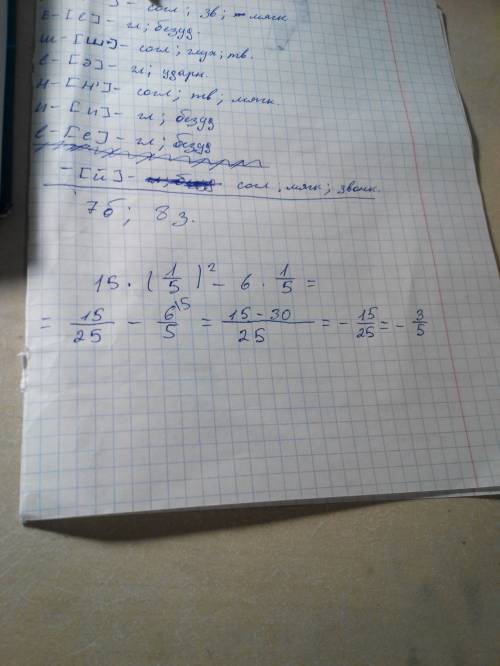 ] - согл; зв; мягк
[ ] - гл; безуд.
ш - [ш] - согл; глух; тв.
е - [э] - гл; ударн.
н - [н'] - согл; тв, мягк.
и - [и] - гл; безуд
е - [е] - гл; безуд
- [й] - согл, мягк; звонк.
7б; 8з.
15 · (1/5)² - 6 · 1/5 =
= 15/25 - 6\5/5 = 15 - 30/25 = - 15/25 = - 3/5